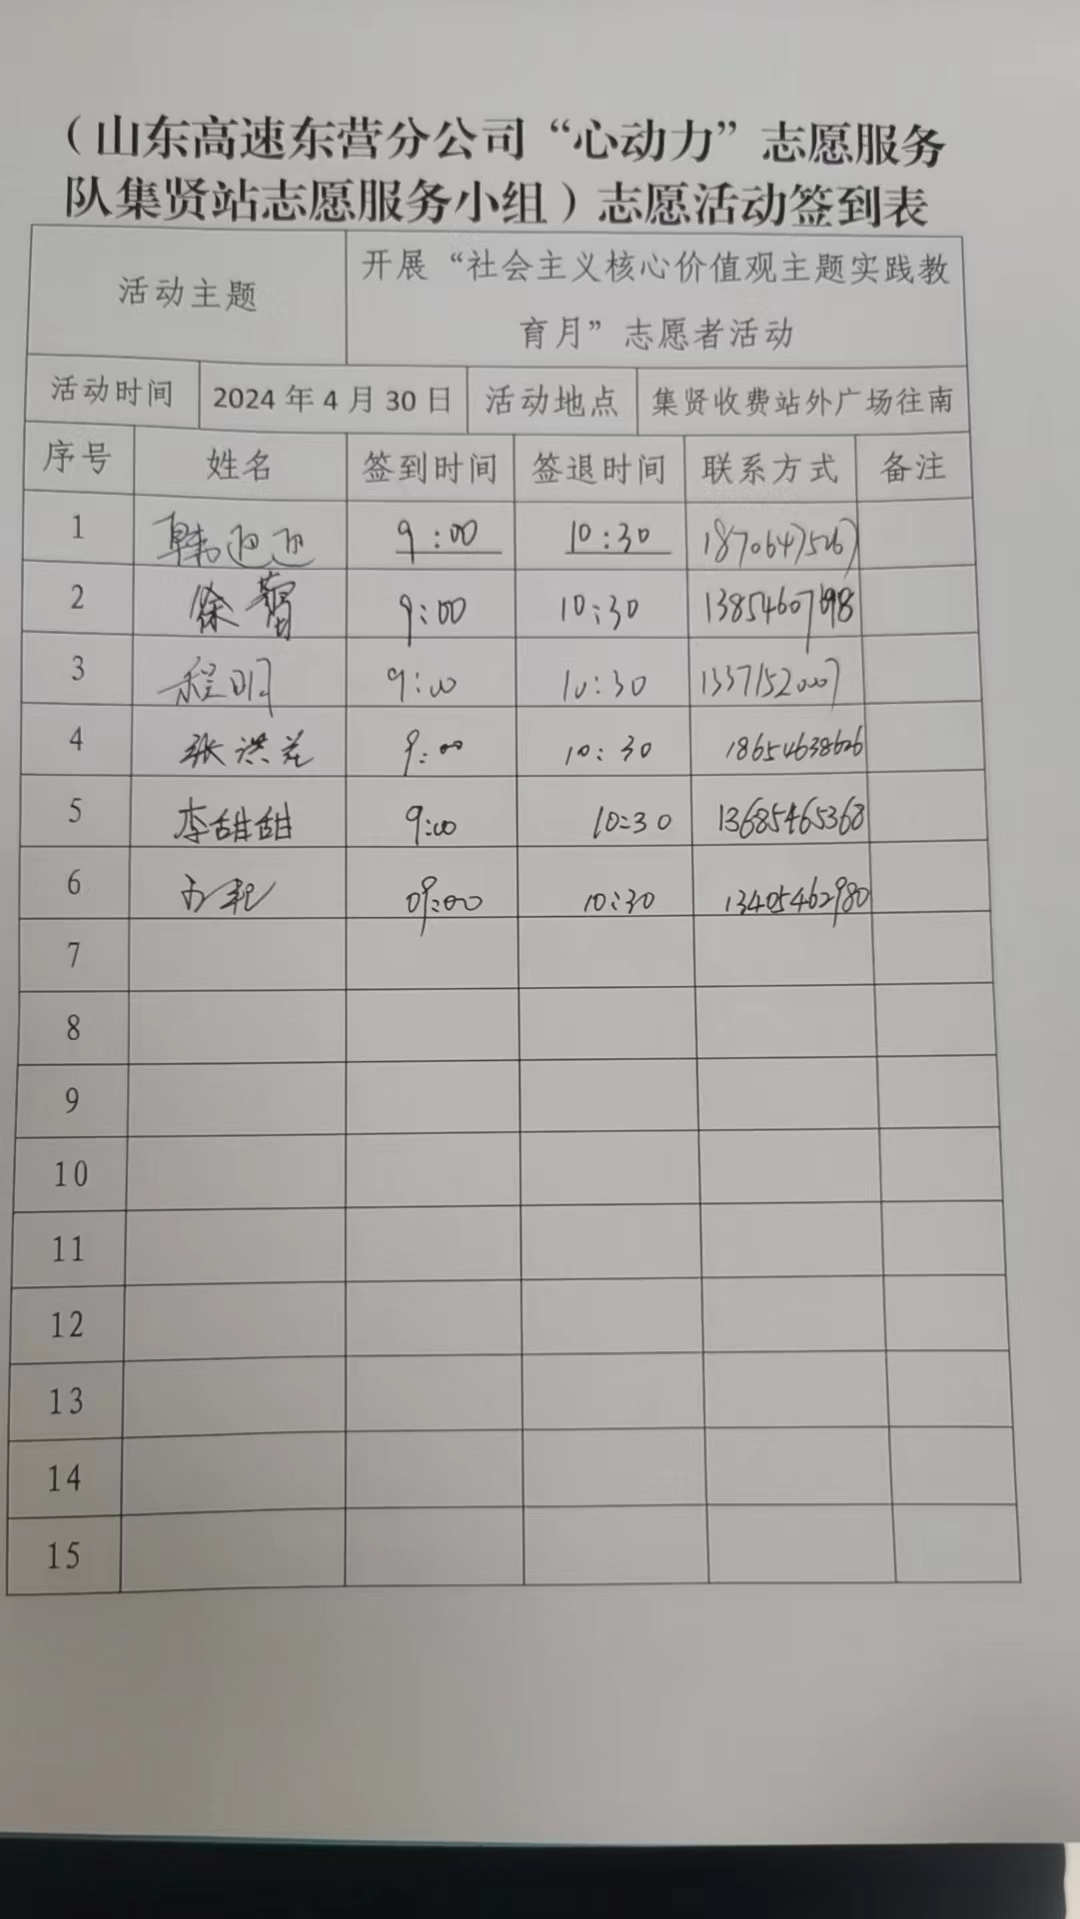 （山东高速东营分公司“心动力”志愿服务
队集贤站志愿服务小组）志愿活动签到表
活动主题 开展“社会主义核心价值观主题实践教
育月”志愿者活动
活动时间 2024 年 4 月 30 日 活动地点 集贤收费站外广场往南
序号 姓名 签到时间 签退时间 联系方式 备注
1 9:00 10:30
2 徐 9:00 10:30
3 程明 9:00 10:30 13371520007
4 张洪 9:00 10:30 18654638626
5 李甜甜 9:00 10:30 13685465368
6 09:00 10:30 13405462980
7
8
9
10
11
12
13
14
15